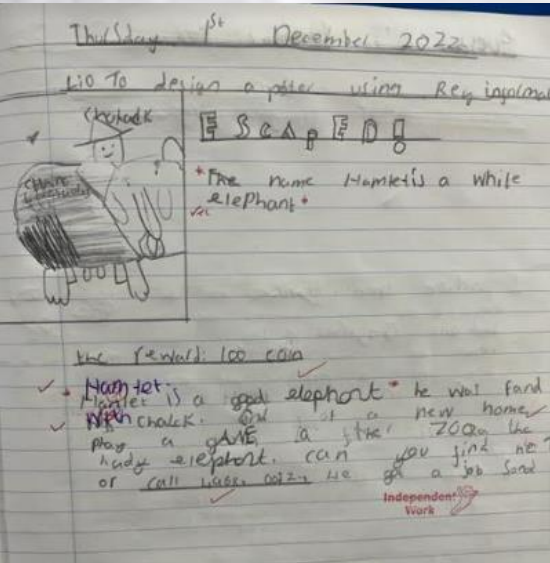 Thursday 1st December 2022
LIO To design a poster using Key
Chukadk
ESCAPED!
*The name Hamlet is a while
elephant*
the reward: 100 coin
Hamter is
Hamlet is a good elephont* he was fand
With chalck. a new home
play a gAME a the Z00a the
hudy elephort. can you find he
or call we got a job
Independent
Work